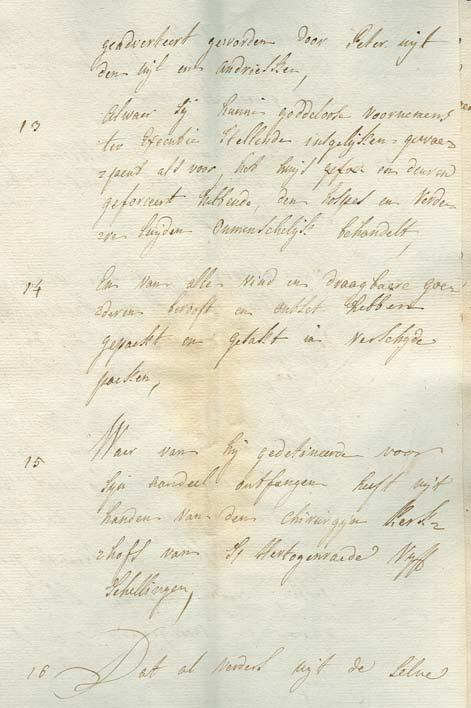 geadverteert geworden door Peter uijt
den uijl en andriesken,
13 Alwaer sij hunne goddelose voornemens
ter executie stellende insgelijkx gewae-
-pent als voor, het huijs en deuren
geforceert hebbende, den hospes en verde-
-re luijden onmenschelijk behandelt,
14 En van alle vind en draagbaere goe-
-deren berooft en ontset hebben
gepackt en gelakt in verschyde
packen,
15 Waer van hij gedetineerde voor
sijn aandeel ontfangen heeft uijt
handen van den chirurgyn Kerk-
-hoffs van 's Hertogenraede vyff
schellingen,
16 Dat al verders uijt de selve